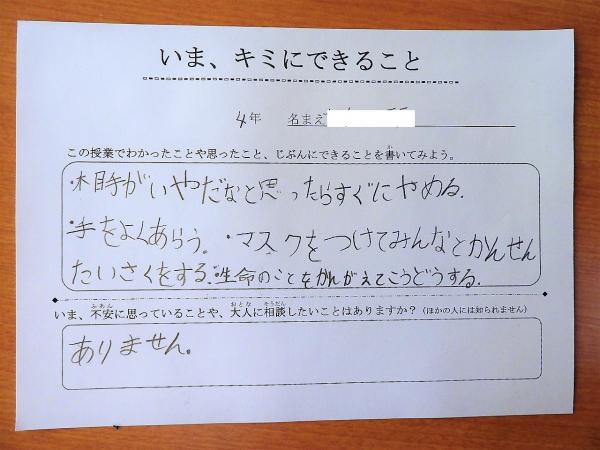 いま、キミにできること
4年 名まえ
この授業でわかったことや思ったこと、じぶんにできることを書いてみよう。
・相手がいやだなと思ったらすぐにやめる.
・手をよくあらう。・マスクをつけてみんなとかんせん
たいさくをする.・生命のことをかんがえてこうどうする.
いま、不安に思っていることや、大人に相談したいことはありますか?(ほかの人には知られません)
ありません。